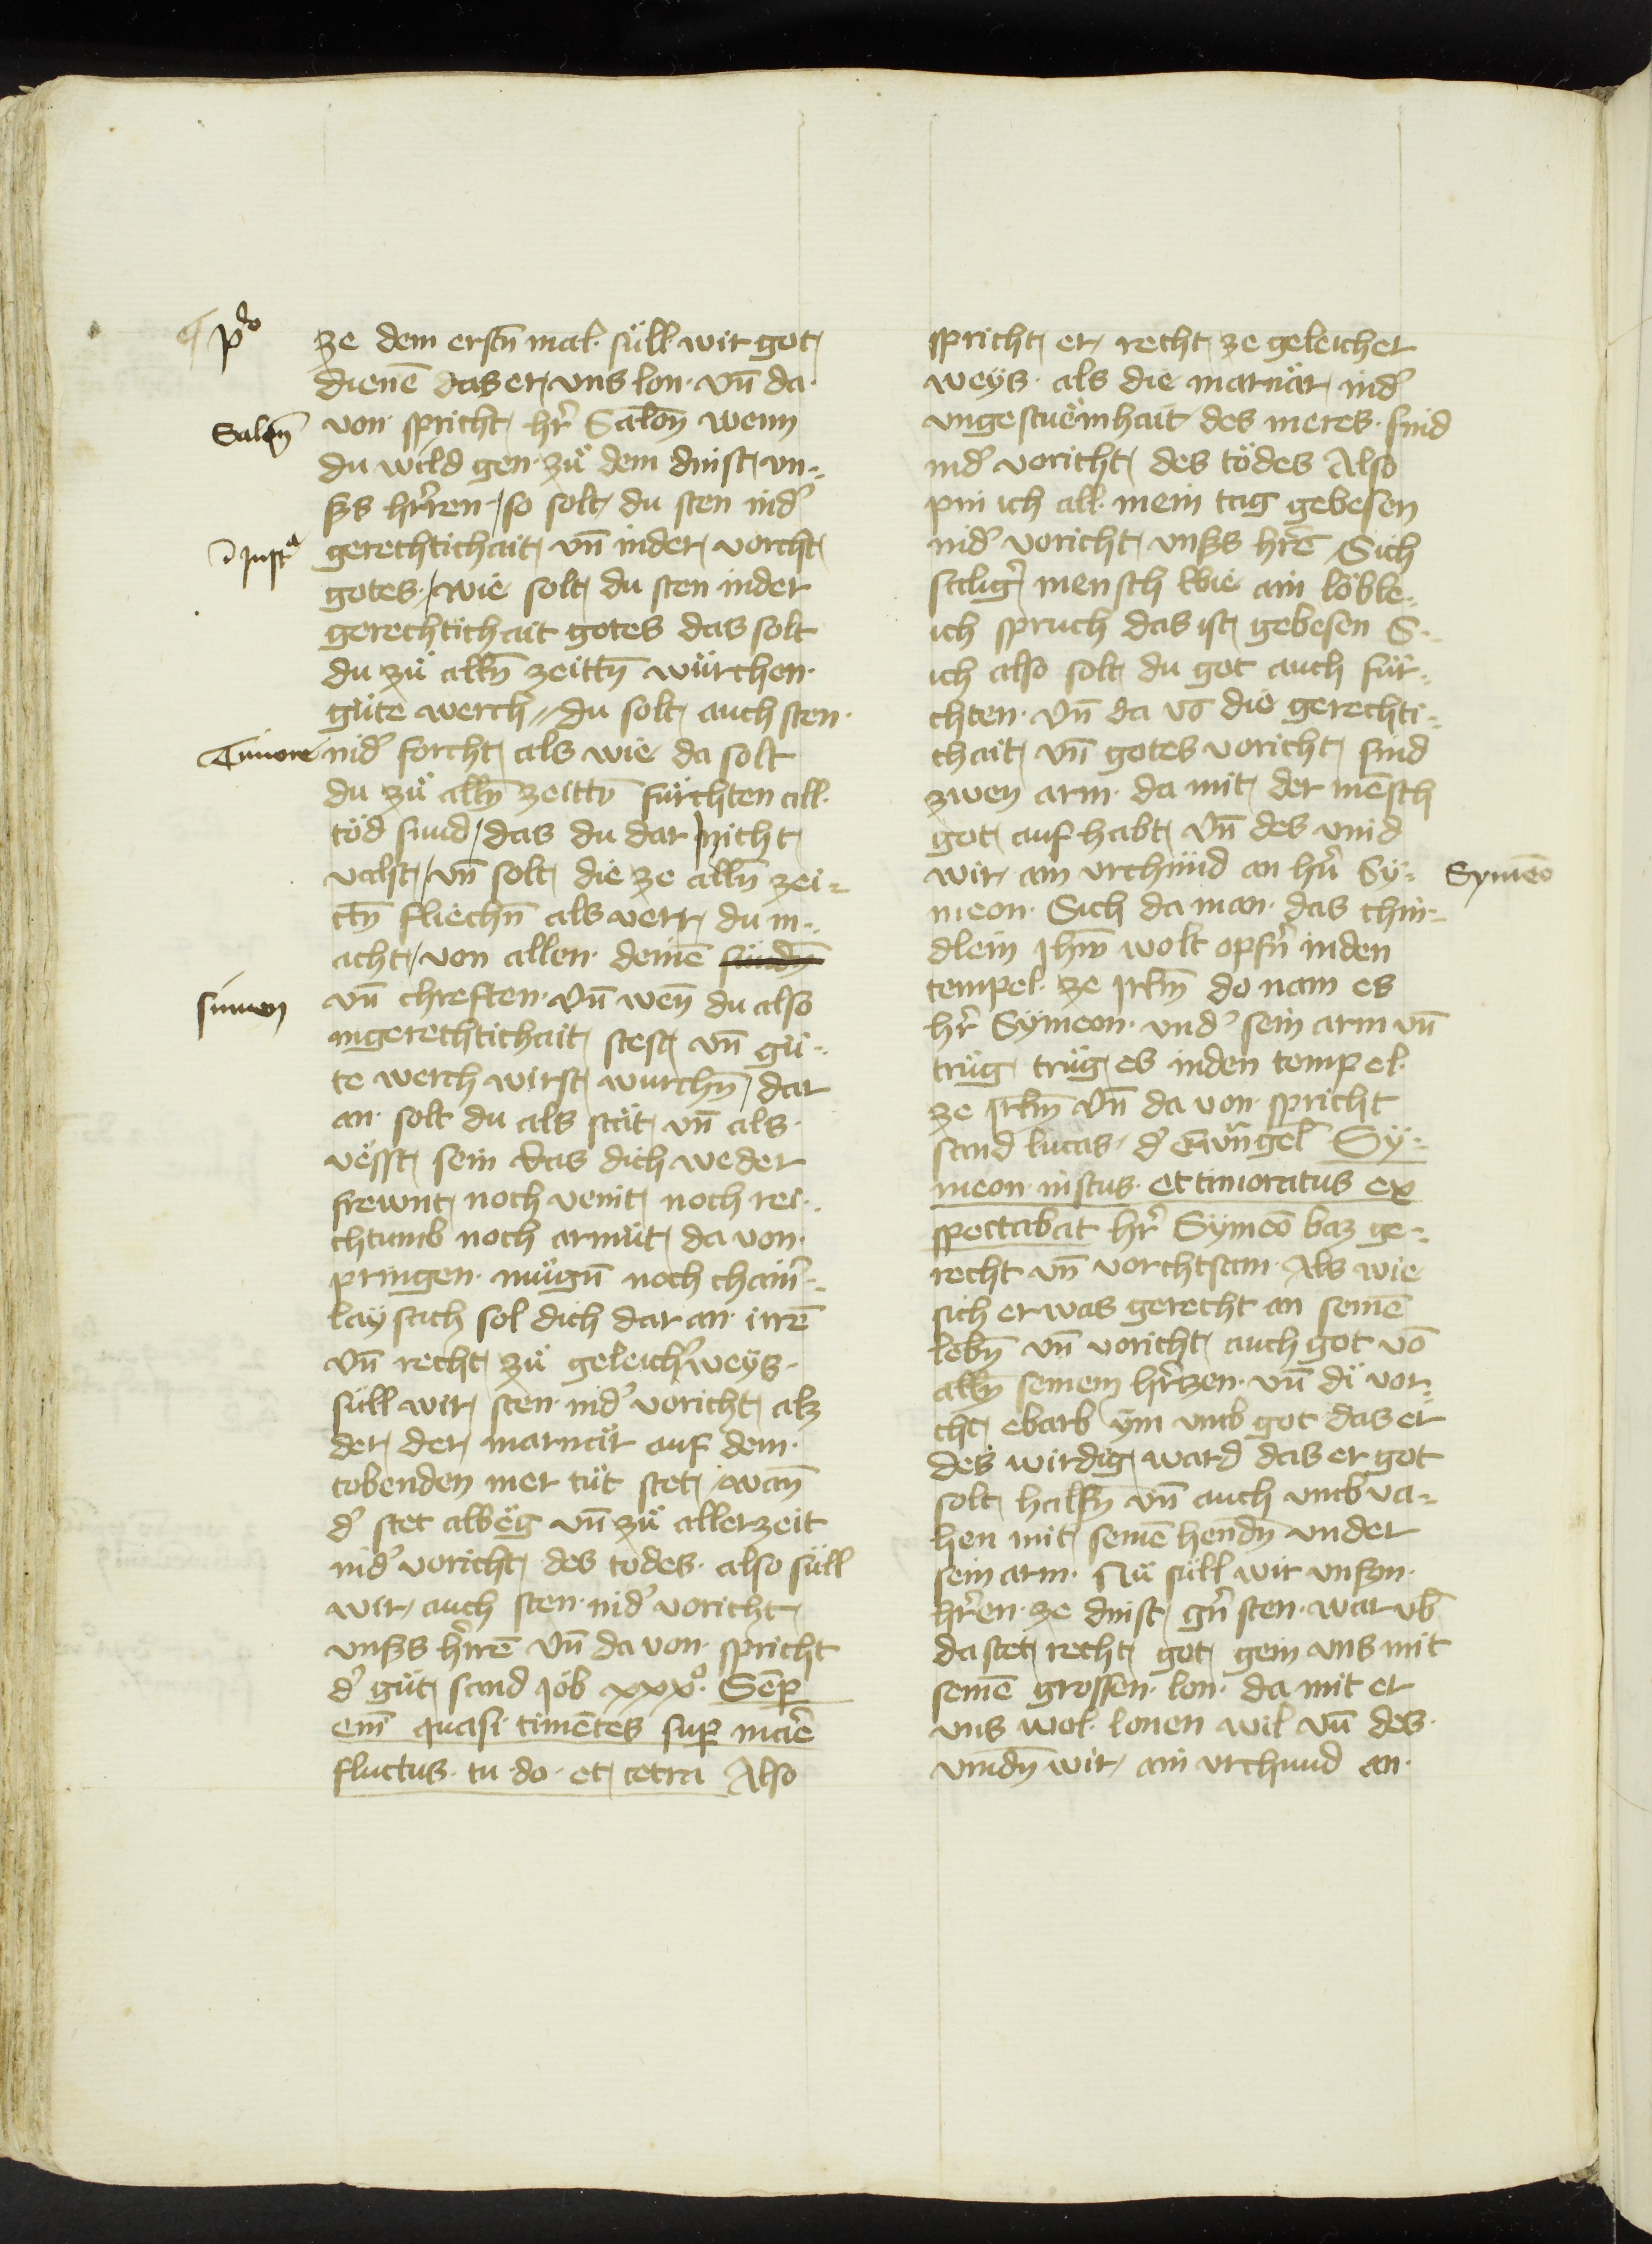 p̃o
ze dem erstn̄ mal· süll wir got
dienē das er vns lon· vn̄ da·
Salon̄
von· spricht hr̄ Salon̄ wenn
du wild gen· zü dem dinst vn-
sɜs hr̄ren· so solt du sten ind̕
ī Just̾a
gerechtichait vn̄ inder vorcht
gotes· wie solt du sten inder
gerechtichait gotes das solt
du zü alln̄ zeittn̄ würchen·
güte werch du solt auch sten·
Timore
ind̕ forcht als wie da solt
du zü alln̄ zeittn̄ fürchten all·
töd sund das du dar nicht
valst vn̄ solt die ze alln̄ zei-
ctn̄ fliechn̄ als verr du m-
acht von allen· deinē sündn̄
simon
vn̄ chreften· vn̄ wen̄ du also
ingerechtichait stest vn̄ gü-
te werch wirst wurchn̄ dar
an· solt du als stät vn̄ als·
vësst sein das dich weder
frewnt noch veint noch rei-
chtumb noch armüt da von·
pringen· mügn̄ noch chain̕-
lay sach sol dich dar an· irrē
vn̄ recht zü geleich̕ weys·
süll wir sten· ind̕ voricht alz
der der marnär auf dem·
tobenden mer tüt stet wan̄
d̕ stet albëg vn̄ zü aller zeit
ind̕ voricht des todes· also süll
wir auch sten· ind̕ voricht
vnsɜs hr̄rē vn̄ da von· spricht
d̕ güt sand Job xxxo· Semp̄
em̄ quasi timētes sup̄ mar̄e
fluctus· tu· do· et cetra Also
spricht er recht ze geleicher
weys· als die marnär ind̕
vngestuëmhait des meres· sind
ind̕ voricht des tödes Also
pin ich all· mein tag gebesen
ind̕ voricht vnsɜs hr̄ē Sich
salig̕ mensch wie ain löble-
ich spruch das ist gebesen S-
ich also solt du got auch für-
chten· vn̄ da vō die gerechti-
chait vn̄ gotes voricht sind
zwen arm· da mit der mēsch
got auf habt vn̄ des vind
wir ain vrchünd an hr̄n Sy-
Symeō
meon· Sich da man· das chin-
dlein Jhm̄ wolt opfn̄ inden
tempel· ze Jrlm̄ do nam es
hr̄ Symeon· vnd̕ sein arm vn̄
trüg trüg es inden tempel·
ze Jrlm̄ vn̄ da von· spricht
sand lucas· d̕ Ewn̄gel Sy-
meon· iustus· et timoratus ex
spectabat hr̄ Symeō baz ge-
recht vn̄ vorchtsam· Als wie
sich er was gerecht an seinē
lebn̄ vn̄ voricht auch got vō
alln̄ seinem hr̄zen· vn̄ di vor-
cht ebarb ym vmb got das er
des wirdig ward das er got
solt halsn̄ vn̄ auch vmbva-
hen mit seinē hendn̄ vnder
sein arm· Nü süll wir vnsɜn·
hr̄ren· ze dinst gn̄ sten· warvb̄
da stet recht got gein vns mit
seinē grossen· lon· da mit er
vns wol· lonen wil vn̄ des·
vindn̄ wir ain vrchund an·